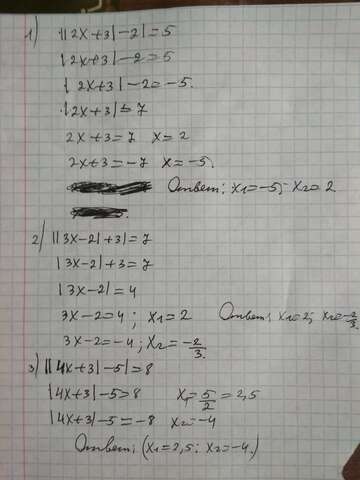 1) ||2x+3|-2|=5
|2x+3|-2=5
|2x+3|-2=-5.
|2x+3|=7
2x+3=7 x=2
2x+3=-7 x=-5.
Ответ: x₁=-5; x₂=2
2) ||3x-2|+3|=7
|3x-2|+3=7
|3x-2|=4
3x-2=4; x₁=2 Ответ: x₁=2; x₂=-2/3.
3x-2=-4; x₂=-2/3.
3) ||4x+3|-5|=8
|4x+3|-5=8 x₁=5/2=2,5
|4x+3|-5=-8 x₂=-4
Ответ: (x₁=2,5; x₂=-4.)